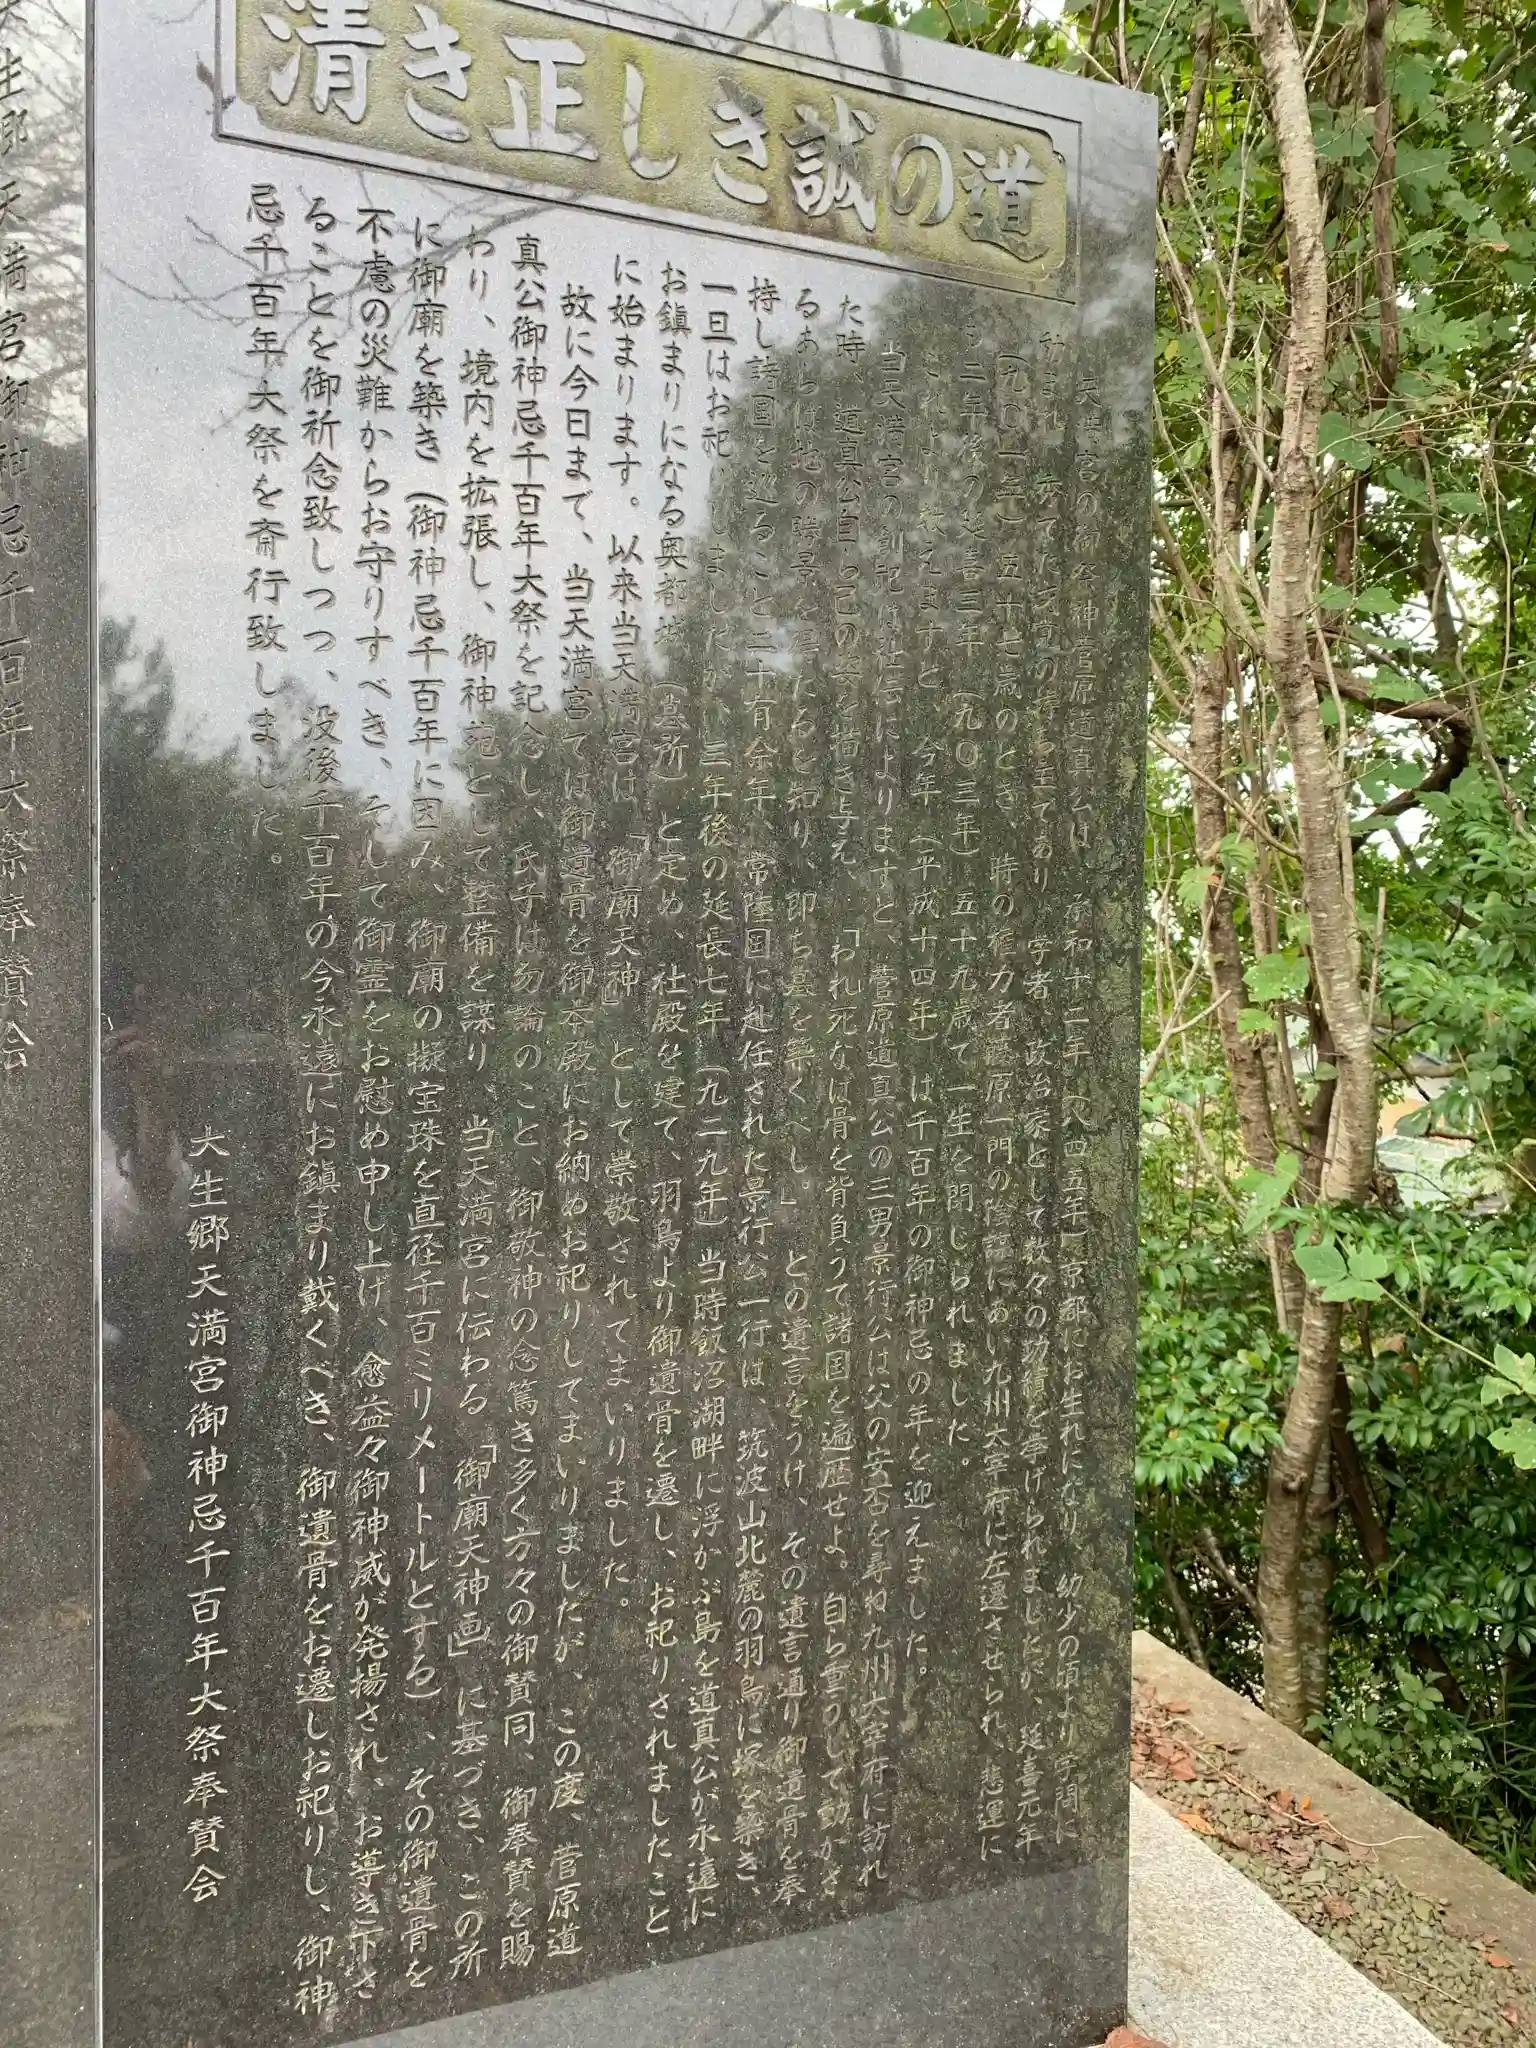 清き正しき誠の道
天満宮の御祭神菅原道真公は、承和十二年(八四五年)京都にお生れになり、幼少の頃より学問に
励まれ、秀でた才覚の持ち主であり、学者、政治家として数々の功績を挙げられましたが、延喜元年
(九〇一年)五十七歳のとき、時の権力者藤原一門の陰謀にあい九州大宰府に左遷させられ、悲運に
も二年後の延喜三年(九〇三年)五十九歳で一生を閉じられました。
これより数えますと、今年(平成十四年)は千百年の御神忌の年を迎えました。
当天満宮の創祀は社伝によりますと、菅原道真公の三男景行公は父の安否を尋ね九州大宰府に訪れ
た時、道真公自ら己の姿を描き与え、「われ死なば骨を背負うて諸国を遍歴せよ。自ら重うして動かざ
るあらば地の勝景を得たるを知り、即ち墓を築くべし。」との遺言をうけ、その遺言通り御遺骨を奉
持し諸国を巡ること二十有余年、常陸国に赴任された景行公一行は、筑波山北麓の羽鳥に塚を築き、
一旦はお祀りしましたが、三年後の延長七年(九二九年)当時飯沼湖畔に浮かぶ島を道真公が永遠に
お鎮まりになる奥都城(墓所)と定め、社殿を建て、羽鳥より御遺骨を遷し、お祀りされましたこと
に始まります。以来当天満宮は、「御廟天神」として崇敬されてまいりました。
故に今日まで、当天満宮では御遺骨を御本殿にお納めお祀りしてまいりましたが、この度、菅原道
真公御神忌千百年大祭を記念し、氏子は勿論のこと、御敬神の念篤き多く方々の御賛同、御奉賛を賜
わり、境内を拡張し、御神苑として整備を謀り、当天満宮に伝わる「御廟天神画」に基づき、この所
に御廟を築き(御神忌千百年に因み、御廟の擬宝珠を直径千百ミリメートルとする)、その御遺骨を
不慮の災難からお守りすべき、そして御霊をお慰め申し上げ、愈益々御神威が発揚され、お導き下さ
ることを御祈念致しつつ、没後千百年の今永遠にお鎮まり戴くべき、御遺骨をお遷しお祀りし、御神
忌千百年大祭を斎行致しました。
大生郷天満宮御神忌千百年大祭奉賛会
生郷天満宮御神忌千百年大祭奉賛会